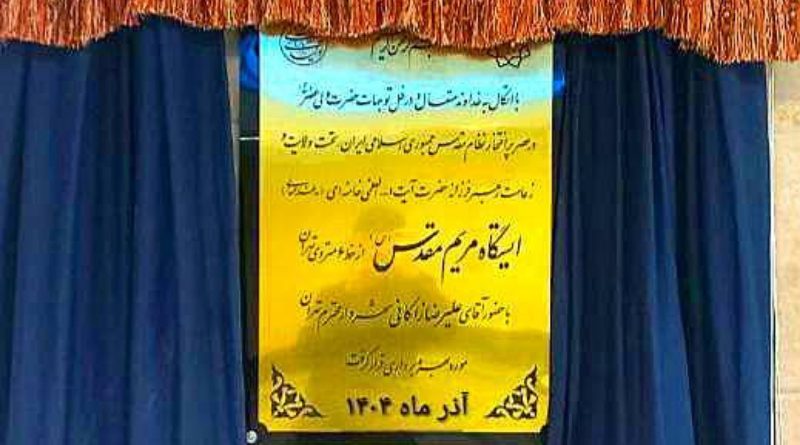 بسم الرحمن الرحیم
با اتکال به خداوند متعال و در ظل توجهات حضرت ولی عصر(عج)
در عصر پر افتخار نظام مقدس جمهوری اسلامی ایران، تحت ولایت و
زعامت رهبر فرزانه حضرت آیت ا... العظمی خامنه ای (مدظله العالی)
ایستگاه مریم مقدس (س) از خط ۶ متروی تهران
با حضور آقای علیرضا زاکانی شهردار محترم تهران
مورد بهره برداری قرار گرفت
آذر ماه ۱۴۰۴